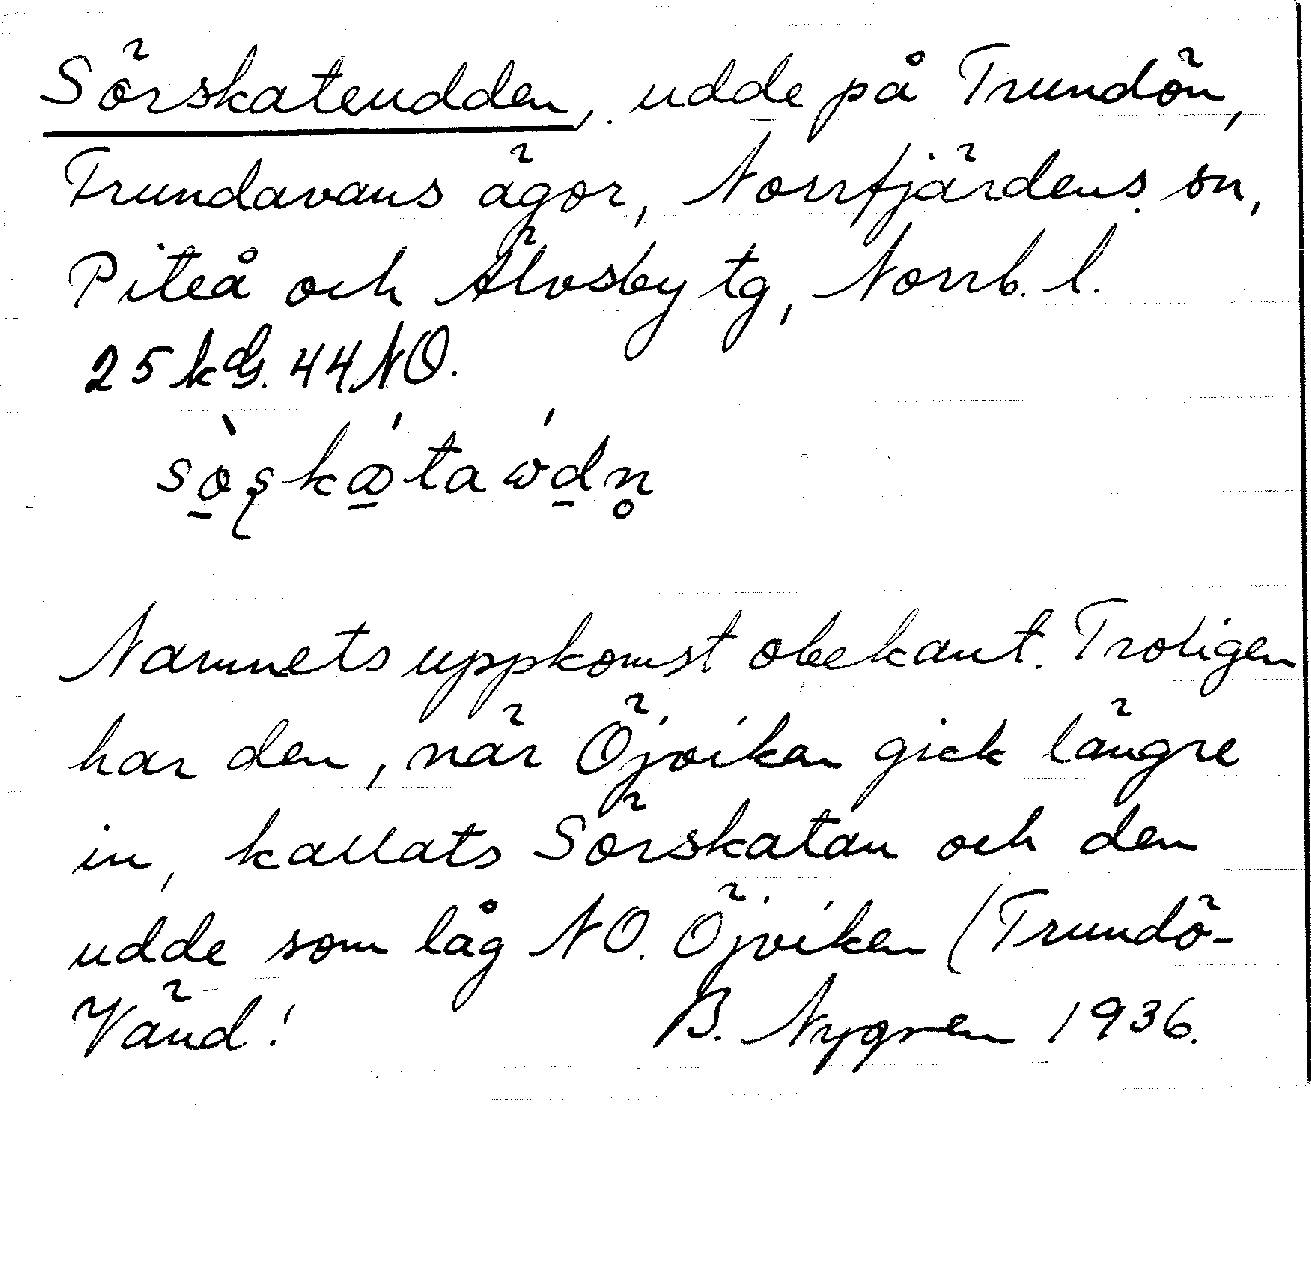 Sörskateudden, udde på Trundön,
Trundavans ägor, Norrfjärdens sn,
Piteå och Älvsby tg, Norrb. l.
25 k G. 44 NO.
Namnets uppkomst obekant. Troligen
har den, när Öjviken gick längre
in, kallats Sörskatan och den
udde som låg NO. Öjviken (Trundö-
Vänd!
B. Nygren 1936.